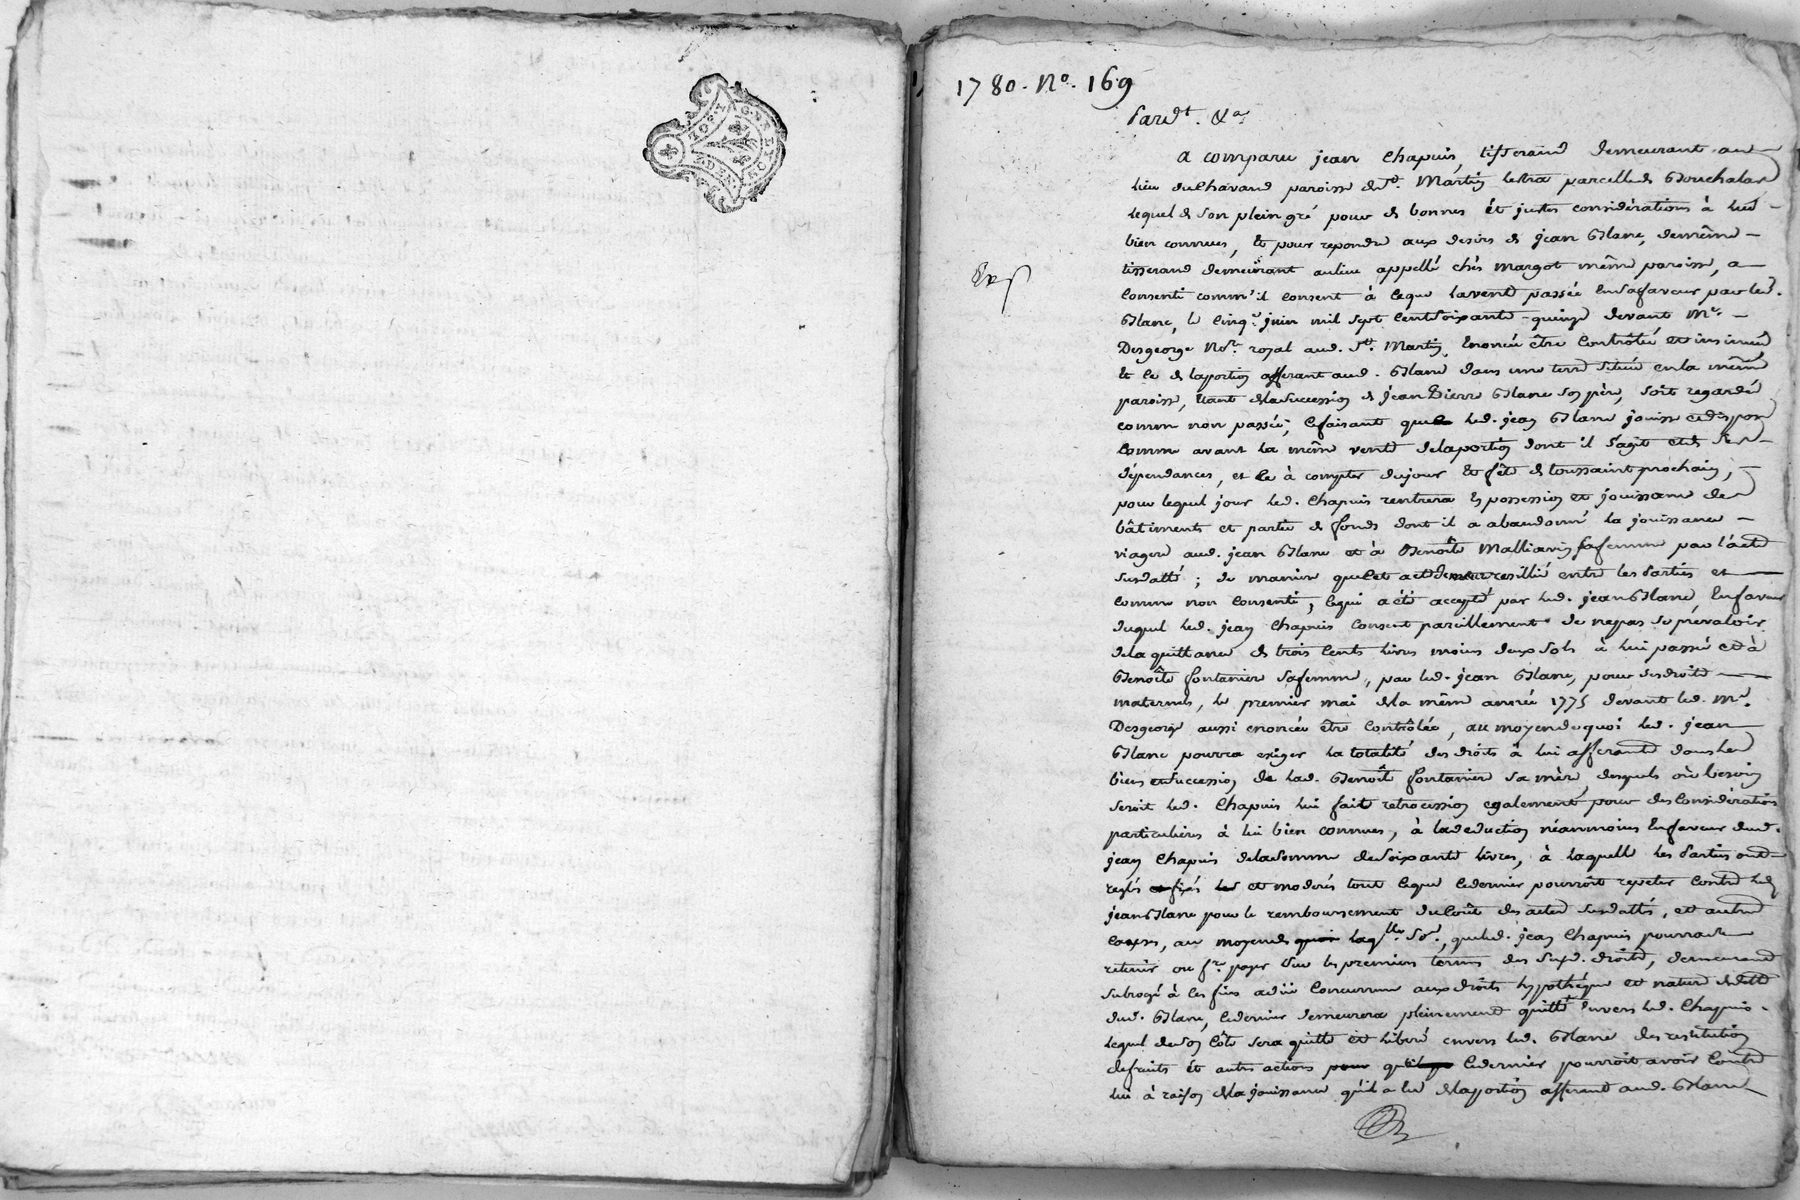 1780. N.º 169
Pard.t &a
A comparu jean Chapuis, tisserand demeurant au
lieu du Chavand paroisse de St. Martin lestra parcelle de Bouchalas
lequel de son plein gré pour de bonnes et justes considérations à lui
bien connues, et pour repondre aux desirs de jean Blanc, demême
tisserand demeurant au lieu appellé chés Margot même paroisse, a
Exp
consenti comm'il consent à ceque lavente passée ensafaveur par led.
Blanc, le cinq.e juin mil sept cent soixante-quinze devant Me.
Desgeorge No.re royal aud. St. Martin, enoncée être contrôlée et insinuée
Et ce de laportion afferant aud. Blanc dans une terre située en la même
paroisse, étant de la succession de jean Pierre Blanc son père, soit regardée
comme non passée; cefaisant que led. jean Blanc jouisse et dispose
comme avant la même vente de laportion dont il s'agit et de ses
dépendances, et ce à compter dujour et fête de toussaint prochain,
pour lequel jour led. Chapuis rentrera en possession et jouissance des
bâtiments et partie de fonds dont il a abandonné la jouissance
viagere aud. jean Blanc et à Benoîte Mallianin safemme par l'acte
susdatté; de maniere quecet acte demeure resillié entre les parties et
comme non consenti, cequi a été accepté par led. jean Blanc, en faveur
duquel led. jean Chapuis consent pareillement de nepas se prévaloir
de la quittance de trois cents livres moins deux sols à lui passée et à
Benoîte fontanier safemme, par led. jean Blanc, pour ses droits
maternels, le premier mai de la même année 1775 devant led. Me.
Desgeorge aussi enoncée être contrôlée, au moyen de quoi led. jean
Blanc pourra exiger la totalité des droits à lui afferants dans les
biens et succession de lad. Benoîte fontanier sa mère, desquels où besoin
seroit led. Chapuis lui fait retrocession egalement pour des considérations
particulieres à lui bien connues, à la deduction néanmoins en faveur dud.
jean Chapuis de la somme de soixante livres, à laquelle les parties ont
reglés et fixés et moderés tout ceque cedernier pourroit repeter contre led.
jean Blanc pour le remboursement du coût des actes susdattés, et autres
causes, au moyen de laq.lle so.e, que led. jean Chapuis pourra
retenir ou f.re payer sur les premiers termes des susd. droits, demeurant
subrogé à ces fins a due concurrence aux droits hypothéque et nature de dette
dud. Blanc, cedernier demeurera pleinement quitte envers led. Chapuis
lequel de son côté sera quitte et libéré envers led. Blanc des restitution
defruits et autres actions que cedernier pourroit avoir contre
lui à raison de la jouissance qu'il a eu de laportion afferant aud. Blanc